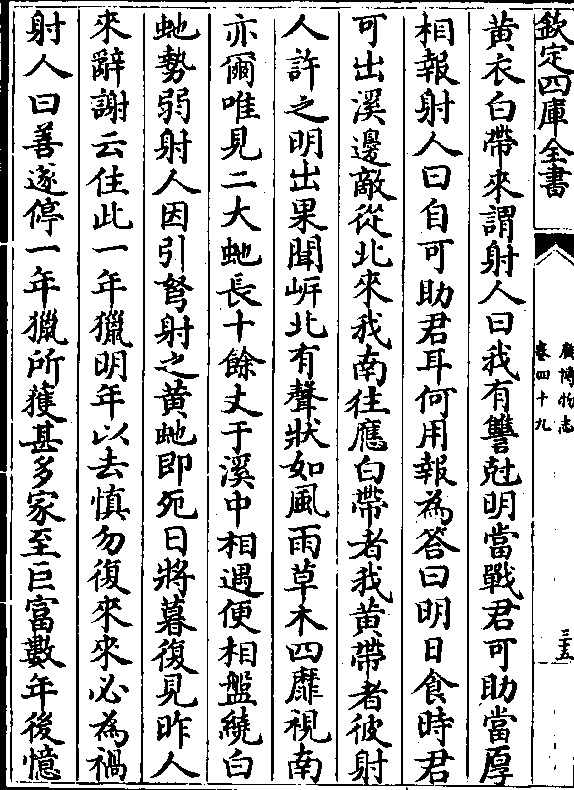 欽定四庫全書
廣博物志
卷四十九
三五
黃衣白帶來謂射人曰我有讐尅明當戰君可助當厚
相報射人曰自可助君耳何用報為答曰明日食時君
可出溪邊敵從北來我南往應白帶者我黃帶者彼射
人許之明出果聞㟁北有聲狀如風雨草木四靡視南
亦爾唯見二大虵長十餘丈于溪中相遇便相盤繞白
虵勢弱射人因引弩射之黃虵即死日將暮復見昨人
來辭謝云住此一年獵明年以去慎勿復來來必為禍
射人曰善遂停一年獵所獲甚多家至巨富數年後憶